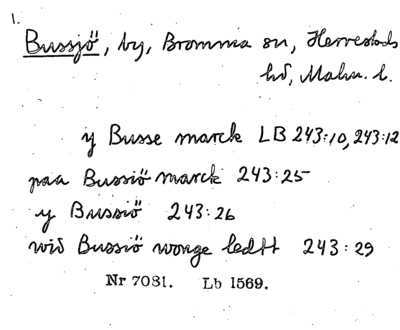 1.
Bussjö, by, Bromma sn, Herrestads
hd, Malm. l.
y Busse marck LB 243:10, 243:12
paa Bussiö marck 243:25
y Bussiö 243:26
wid Bussiö wonge ledtt 243:29
Nr 7081. Lb 1569.